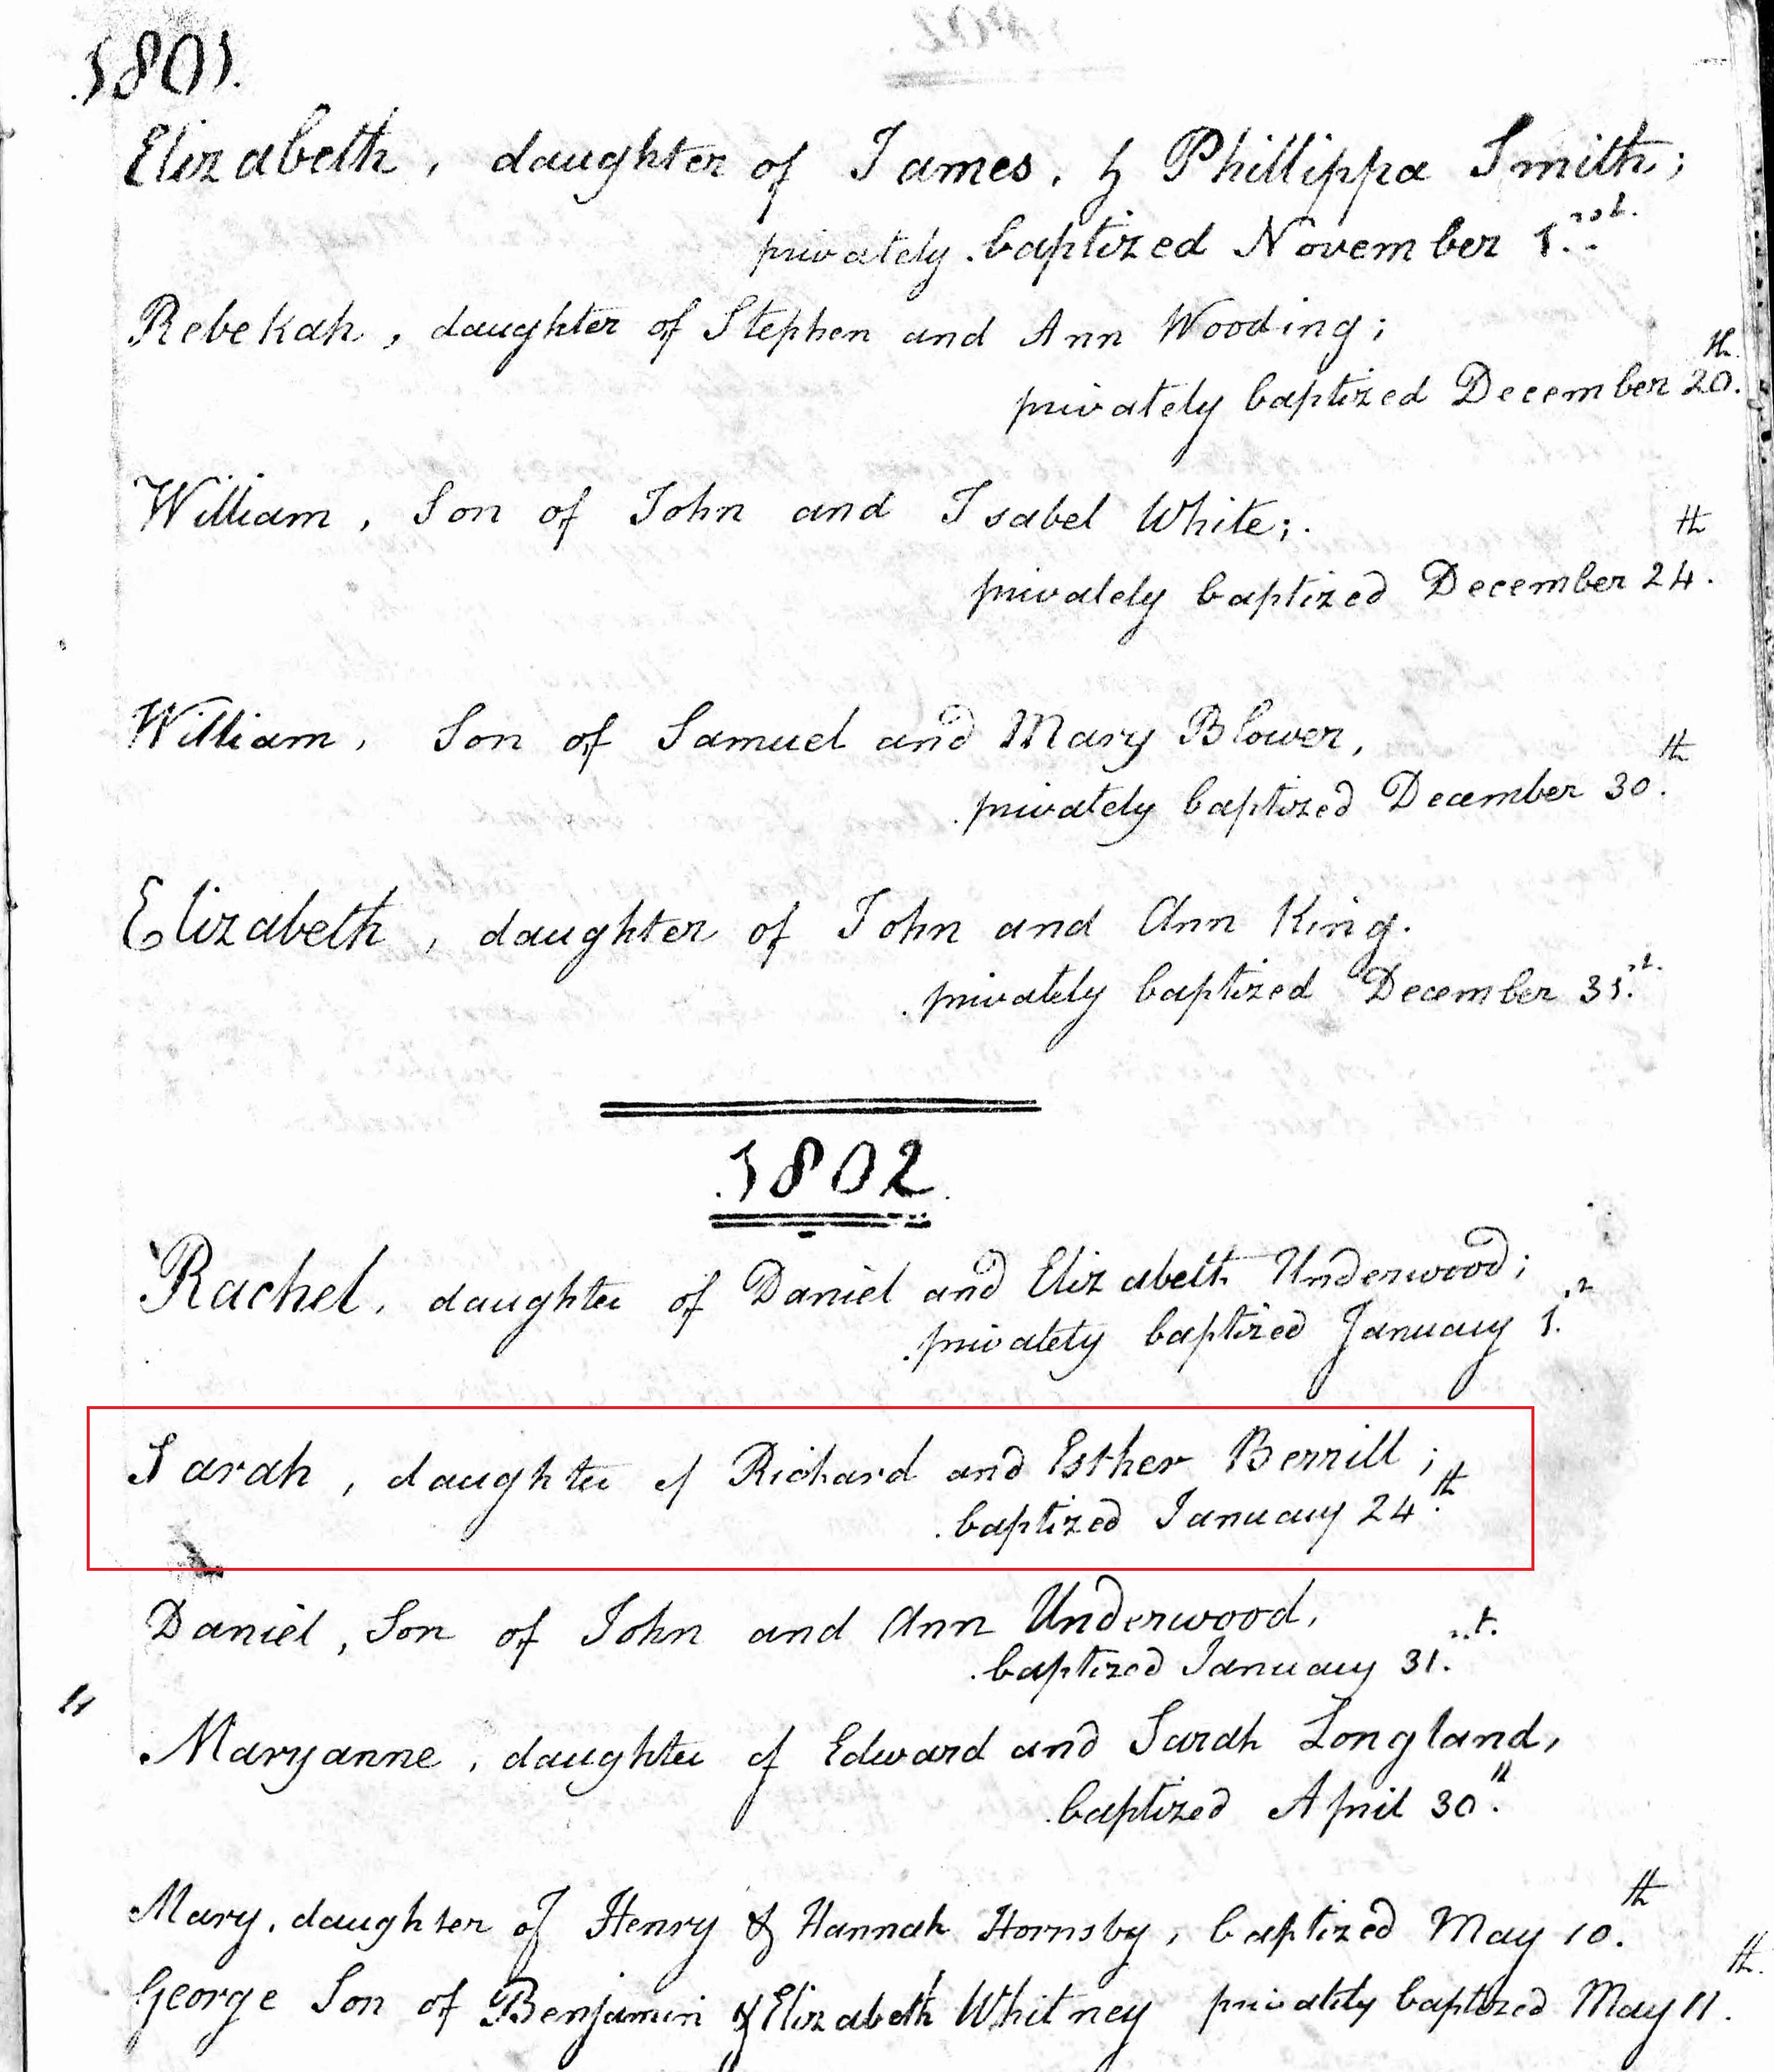 1801.
Elizabeth, daughter of James, & Phillippa Smith;
privately baptized November 1st.
Rebekah, daughter of Stephen and Ann Wooding;
privately baptized December 20th.
William, Son of John and Isabel White;
privately baptized December 24th.
William, Son of Samuel and Mary Blower,
privately baptized December 30th.
Elizabeth, daughter of John and Ann King.
privately baptized December 31st.
1802
Rachel, daughter of Daniel and Elizabeth Underwood;
privately baptized January 1st.
Sarah, daughter of Richard and Esther Berrill;
baptized January 24th.
Daniel, Son of John and Ann Underwood,
baptized January 31st.
Maryanne, daughter of Edward and Sarah Longland,
baptized April 30th.
Mary, daughter of Henry & Hannah Hornsby, baptized May 10th.
George Son of Benjamin & Elizabeth Whitney privately baptized May 11th.